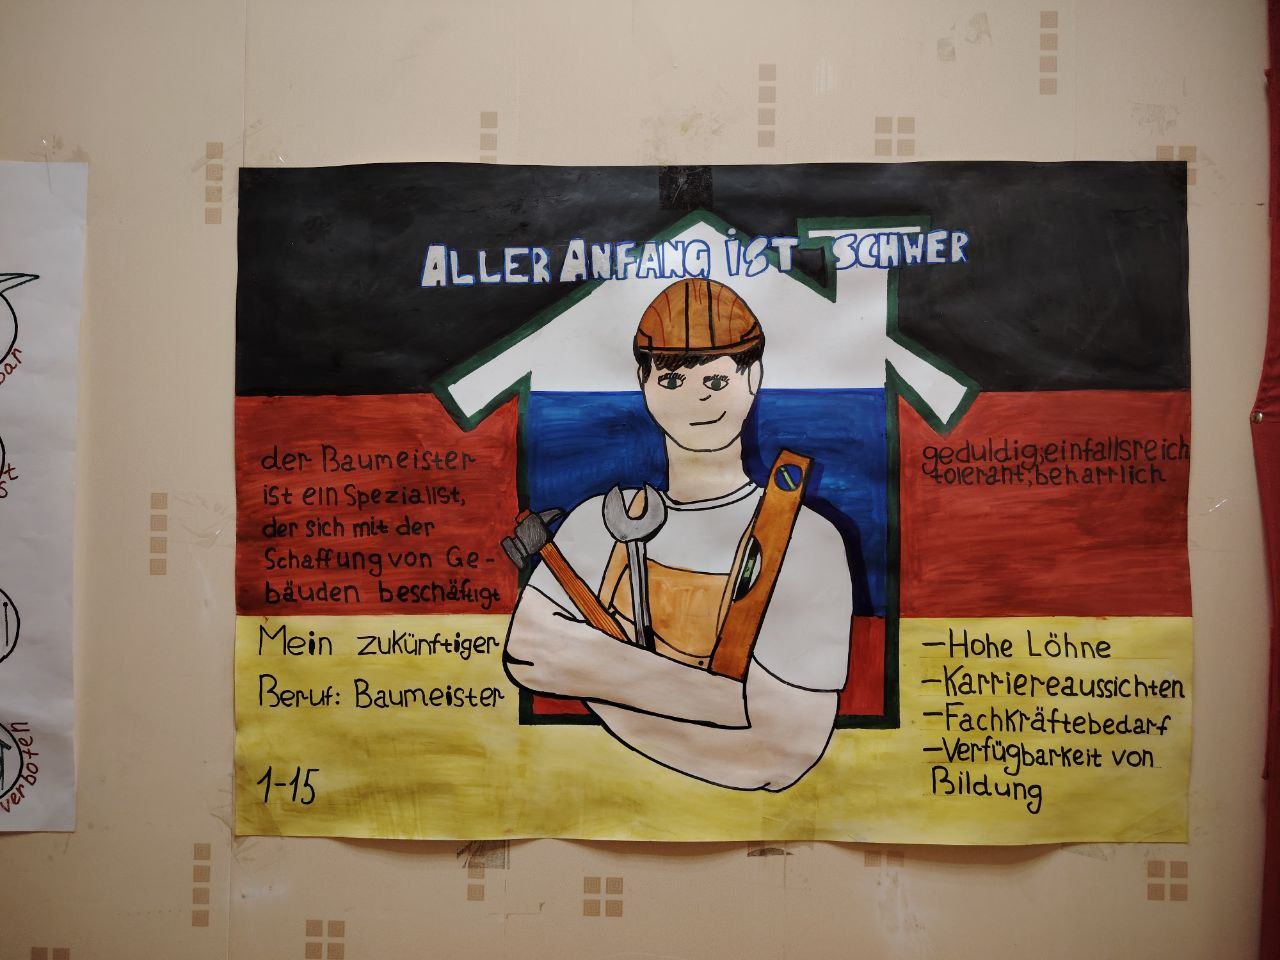 ALLER ANFANG iST SCHWER
der Baumeister
ist ein Spezialist,
der sich mit der
Schaffung von Ge-
bäuden beschäftigt
Mein zukünftiger
Beruf: Baumeister
1-15
geduldig, einfallsreich
tolerant, beharrlich
-Hohe Löhne
-Karriereaussichten
-Fachkräftebedarf
-Verfügbarkeit von
Bildung
verboten